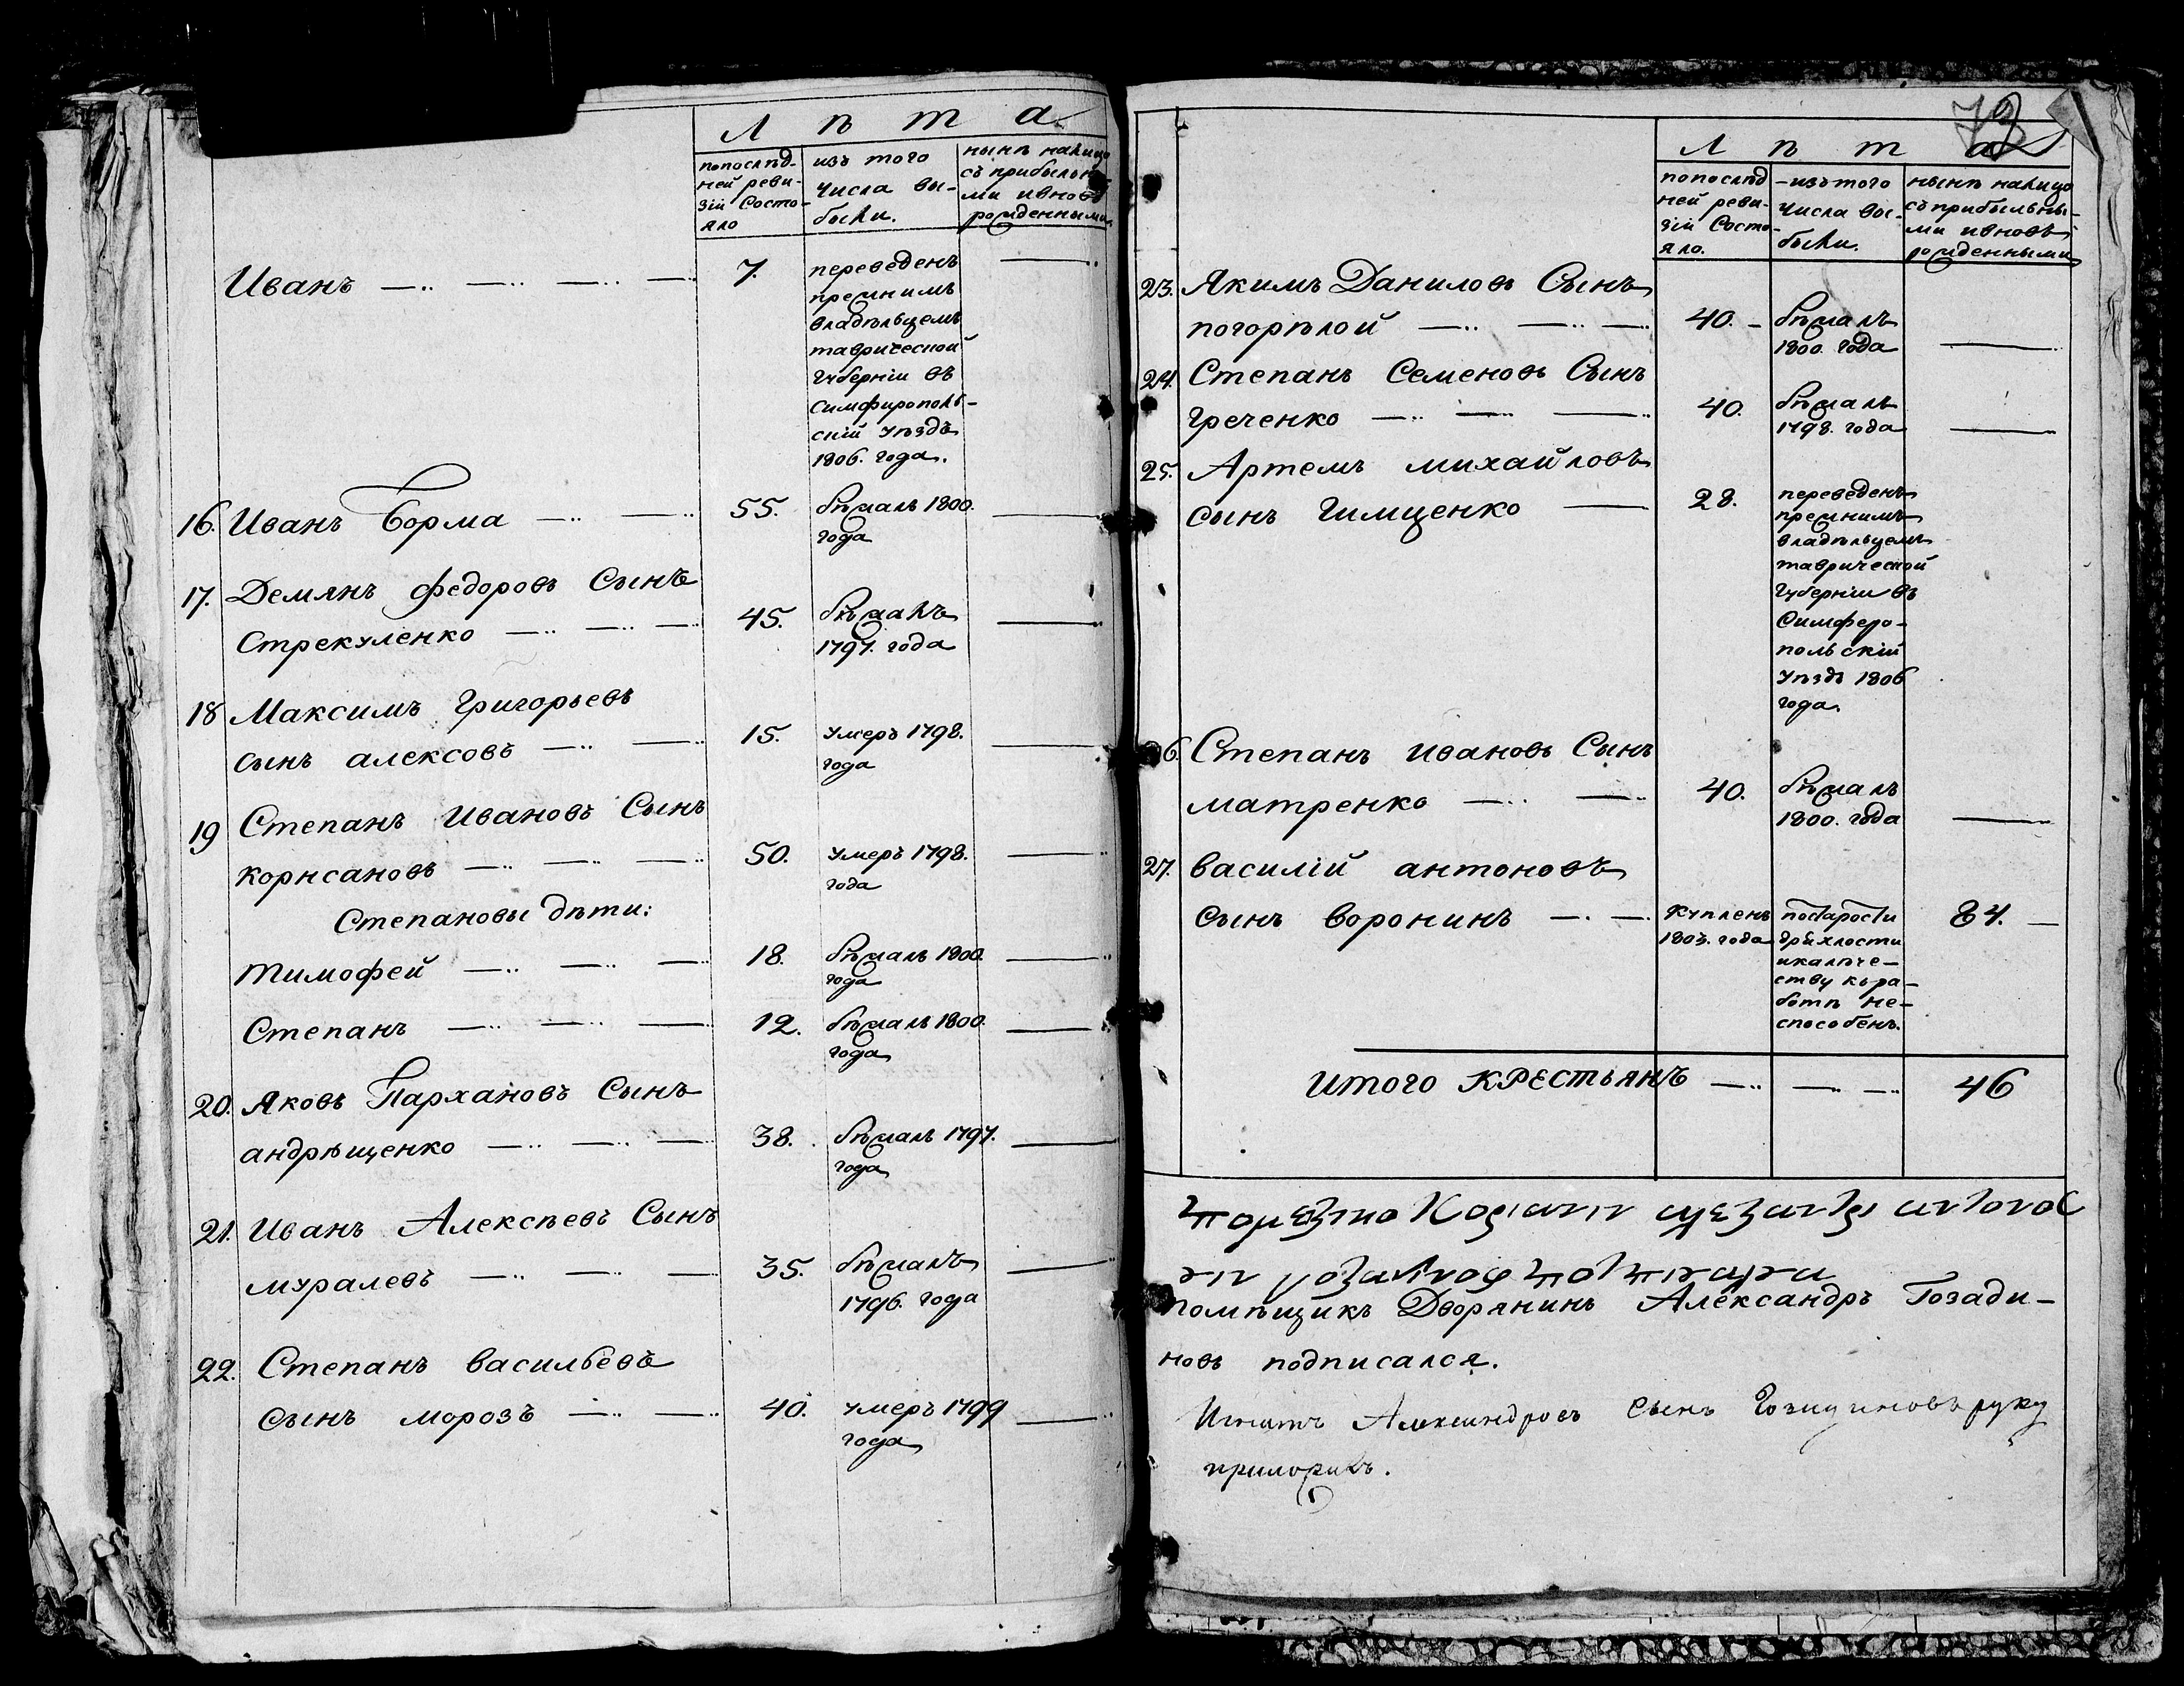 Л ѣ т а
попослѣд-
ней реви-
зіи Состо-
яло
изъ того
числа вы-
были.
нынѣ налицо
съ прибылы-
ми ивновь
рожденными
Иванъ — 7. переведенъ —
прежнимъ
владѣльцемъ
таврической
Губерніи въ
симфирополь-
скій уѣздъ
1806. года.
16. Иванъ Борма — 55. бѣжалъ 1800. —
года
17. Демянъ федоровъ Сынъ
Стрекуленко — 45. бѣжалъ —
1797. года
18 Максимъ Григорьевъ
сынъ алексовъ — 15. умеръ 1798. —
года
19 Степанъ Ивановъ Сынъ
корнсановъ — 50. умеръ 1798. —
года
Степановы дѣти:
тимофей — 18. бѣжалъ 1800. —
года
Степанъ — 12. бѣжалъ 1800. —
года
20. Яковъ Пархановъ Сынъ
андрѣщенко — 38. бѣжалъ 1797. —
года
21. Иванъ Алексѣевъ Сынъ
муралевъ — 35. бѣжалъ —
1796. года
22. Степанъ васильевъ
сынъ морозъ — 40. умеръ 1799 —
года
Л ѣ т а
попослѣд
ней реви-
зіи Состо-
яло.
-изътого
числа вы-
были.
нынѣ налицо
съ прибылы-
ми ивновь
рожденными
23. Якимъ Даниловъ Сынъ
погорѣлой — 40. - бѣжалъ
1800. года —
24. Степанъ Семеновъ Сынъ
греченко — 40. бѣжалъ
1798. года —
25. Артемъ михайловъ
сынъ Гимценко — 28. переведенъ
прежнимъ
владѣльцемъ
таврической
Губерніи въ
Симферо-
польскій
уѣздъ 1806
года.
26. Степанъ ивановъ Сынъ
матренко — 40. бѣжалъ
1800. года —
27. василій антоновъ
сынъ воронинъ — купленъ постарости 84. —
1803. года дряхлости
икалѣче-
ству къра-
ботѣ не-
способенъ.
итого крестьянъ — 46
помѣщикъ Дворянинъ Александръ Гозади-
новъ подписался.
Игнатъ Александровъ сынъ Гозадиновъ руку
приложилъ.